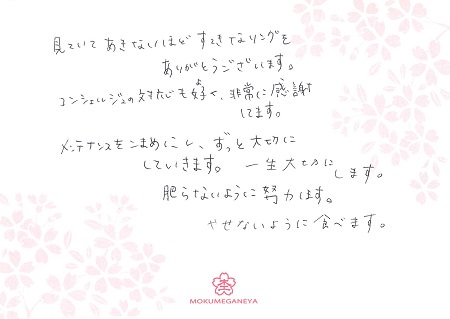 見ていてあきないほどすてきなリングを
ありがとうございます。
コンシェルジュの対応も好く、非常に感謝
してます。
メンテナンスをこまめにし、ずっと大切に
していきます。一生大切に
します。
肥らないように努力します。
やせないように食べます。
MOKUMEGANEYA